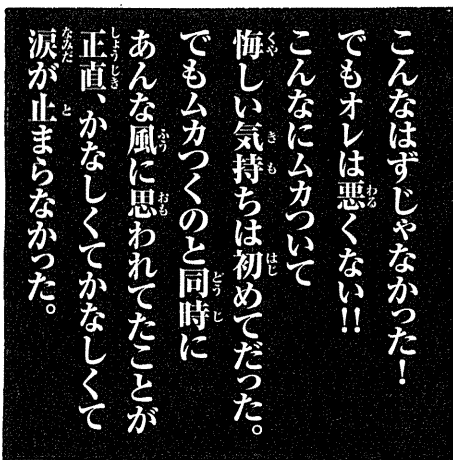 こんなはずじゃなかった！
でもオレは悪くない!!
こんなにムカついて
悔しい気持ちは初めてだった。
でもムカつくのと同時に
あんな風に思われてたことが
正直、かなしくてかなしくて
涙が止まらなかった。